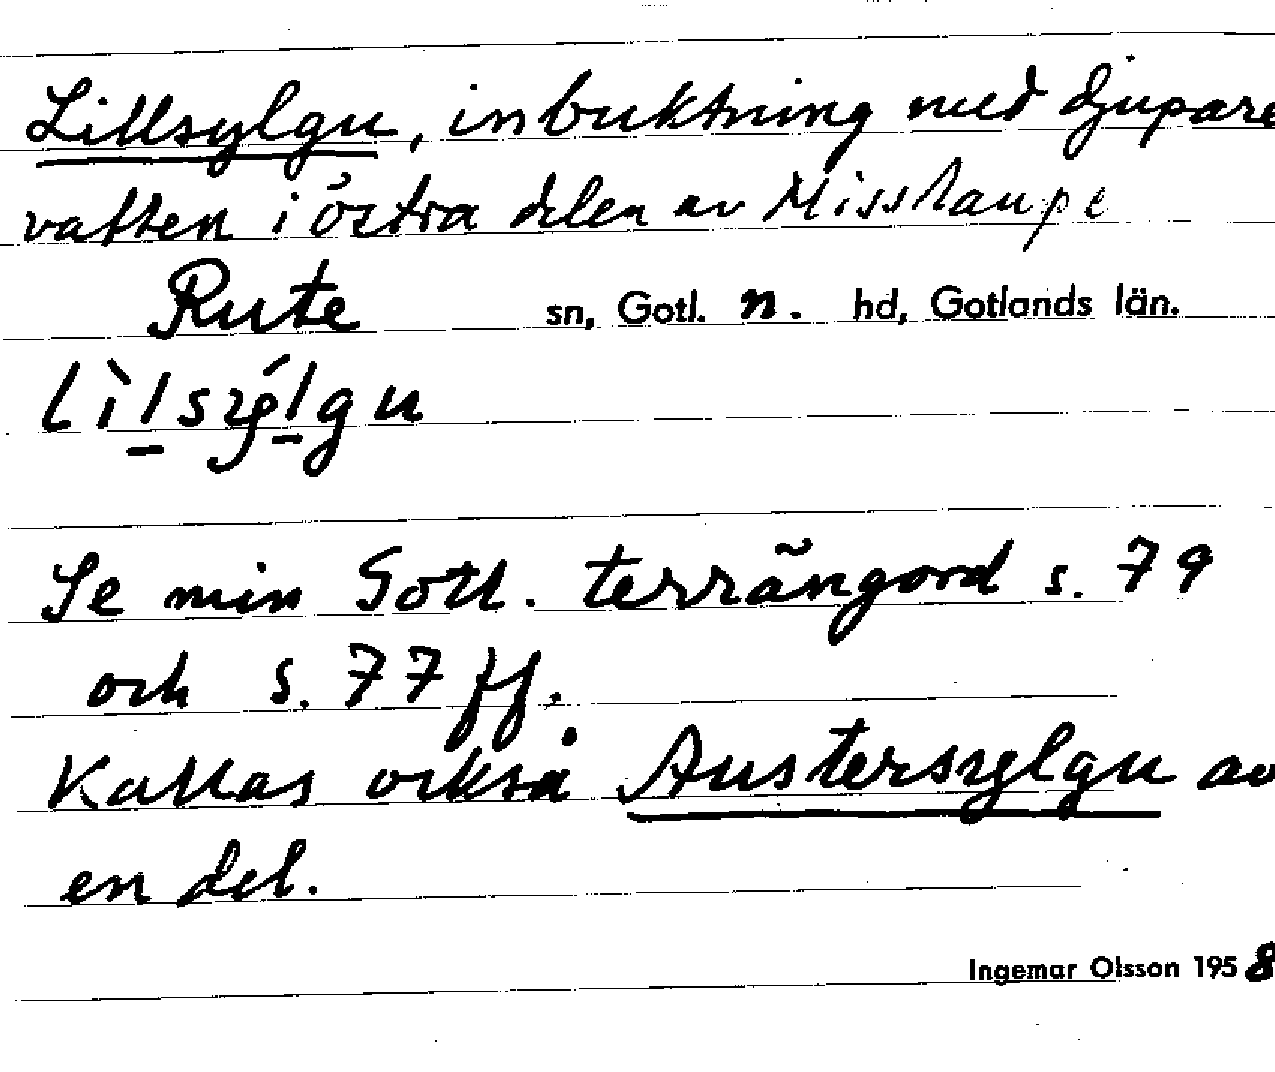 Lillsylgu, inbuktning med djupare
vatten i östra delen av Misslaupe
Rute sn, Gotl. n. hd, Gotlands län.
Se min Gotl. terrängord s. 79
och s. 77 ff.
Kallas också Austersylgu av
en del.
Ingemar Olsson 1958